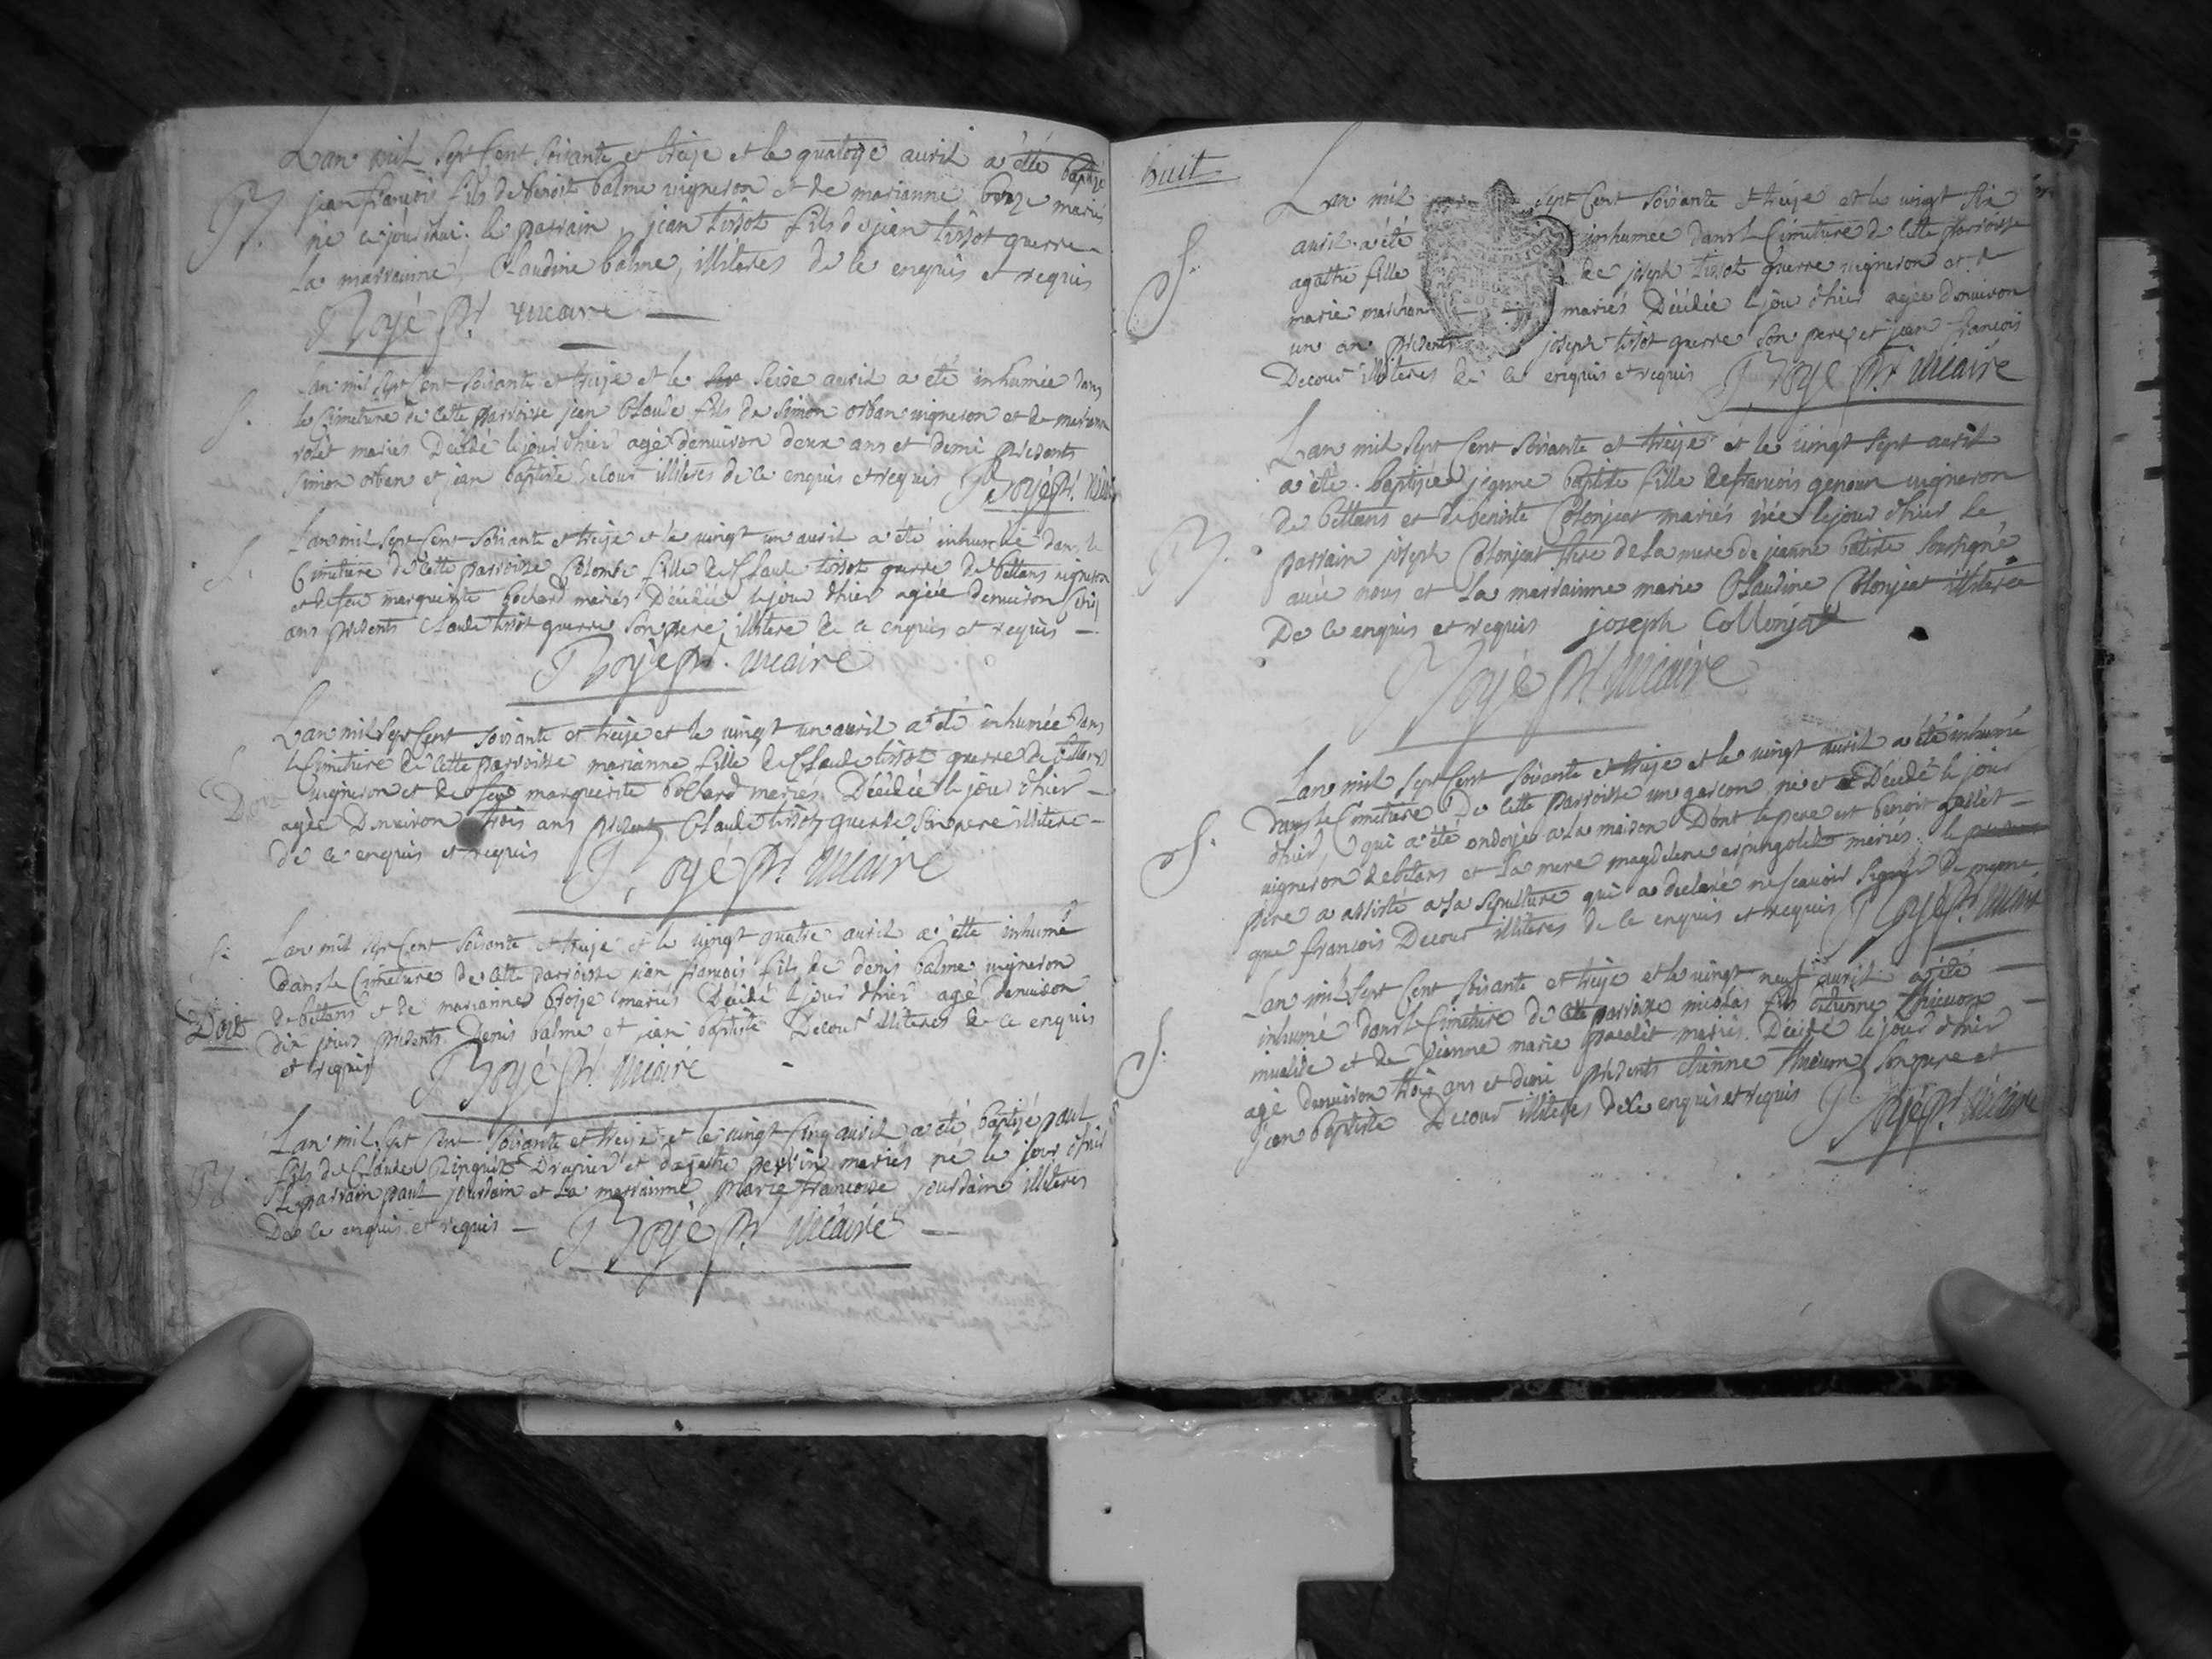 Lan mil sept Cent soixante et treize et le quatorze auril a été baptizé
B. jean françois fils de benoit balme uigneron et de marianne broze mariés
né ce jourdhui. le parrain jean tissot fils de jean tissot guerre
la marrainne, Claudine balme, illiteres de ce enquis et requis
Royé ptr uicaire
Lan mil sept Cent soixante et treize et le seize auril a été inhumée dans
S. le Cimetiere de cette parroisse jean Claude fils de Simon orban uigneron et de marianne
rolet mariés Décédé le jour dhier agé denuiron deux ans et demi présents
Simon orban et jean baptiste Decour illiteres de ce enquis et requis Royé ptr. uicaire
Lan mil sept Cent soixante et treize et le uingt un auril a été inhumée dans le
S. Cimetiere de cette parroisse Colombe fille de Claude tissot guerre de bettans uigneron
et de feue marguerite bochard mariés Décédée le jour dhier agée denuiron
ans présents Claude tissot guerre son pere, illitere de ce enquis et requis
Royé ptr. uicaire
Lan mil sept Cent soixante et treize et le uingt un auril a été inhumée dans
le Cimetiere de cette parroisse marianne fille de Claude tissot guerre de bettans
uigneron et de feue marguerite bochard mariés Décédée le jour dhier
agée Denuiron trois ans présents Claude tissot guerre son pere illitere
de ce enquis et requis Royé ptr. uicaire
S. Lan mil sept Cent soixante et treize et le uingt quatre auril a été inhumé
dans le Cimetiere de cette parroisse jean francois fils de denis balme uigneron
de bettans et de marianne broze mariés Décédé le jour dhier agé denuiron
dix jours présents Denis balme et jean baptiste Decour illiteres de ce enquis
et requis Royé ptr. uicaire
Lan mil sept cent soixante et treize et le uingt cinq auril a été baptizé paul
B. fils de Claude Drapier et dagathe perrin mariés né le jour dhier
le parrain paul jourdain et la marrainne marie francoise jourdain illiteres
De ce enquis et requis Royé ptr. uicaire
huit
Lan mil sept Cent soixante et treize et le uingt six
S. auril a été inhumée dans le Cimetiere de cette parroisse
agathe fille de joseph tissot guerre uigneron et de
marie marchand mariés Décédée le jour dhier agée denuiron
un an présents joseph tissot guerre son pere et jean francois
Decour illiteres de ce enquis et requis Royé ptr. uicaire
Lan mil sept Cent soixante et treize et le uingt sept auril
a été baptizée jeanne baptiste fille de francois genoux uigneron
de bettans et de benoite Colonjeat mariés née le jour dhier le
B. parrain joseph Colonjeat frere de la mere de jeanne batiste soussigné
auec nous et la marrainne marie Claudine Colonjeat illiteree
De ce enquis et requis joseph Collonjat
Royé ptr. uicaire
Lan mil sept Cent soixante et treize et le uingt auril a été inhumé
dans le Cimetiere De cette parroisse un garcon né et Décédé le jour
S. dhier qui a été ondoyé a la maison Dont le pere est benoit gallet
uigneron de betans et la mere magdelene mariés. le
pere a assisté a la sepulture qui a declaré ne scauoir signer De meme
que francois Decour illiteres de ce enquis et requis Royé ptr. uicaire
Lan mil sept Cent soixante et treize et le uingt neuf auril a été
inhumé dans le Cimetiere de cette parroisse nicolas fils detienne thieuon
S. inualide et de jeanne marie mariés Décédé le jour dhier
agé denuiron trois ans et demi présents etienne son pere et
jean baptiste Decour illiteres de ce enquis et requis Royé ptr. uicaire